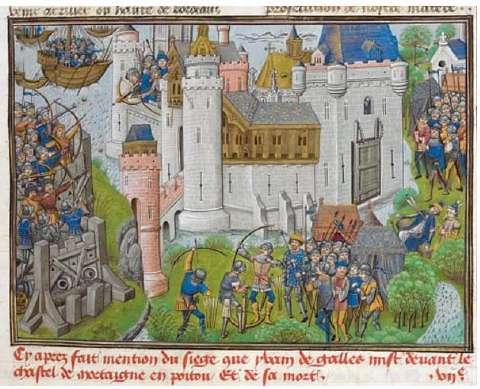 ou haute de
de nostre
Cy aprez fait mention du siege que yvain de galles mist devant le
chastel de mortaigne en poitou Et de sa mort.